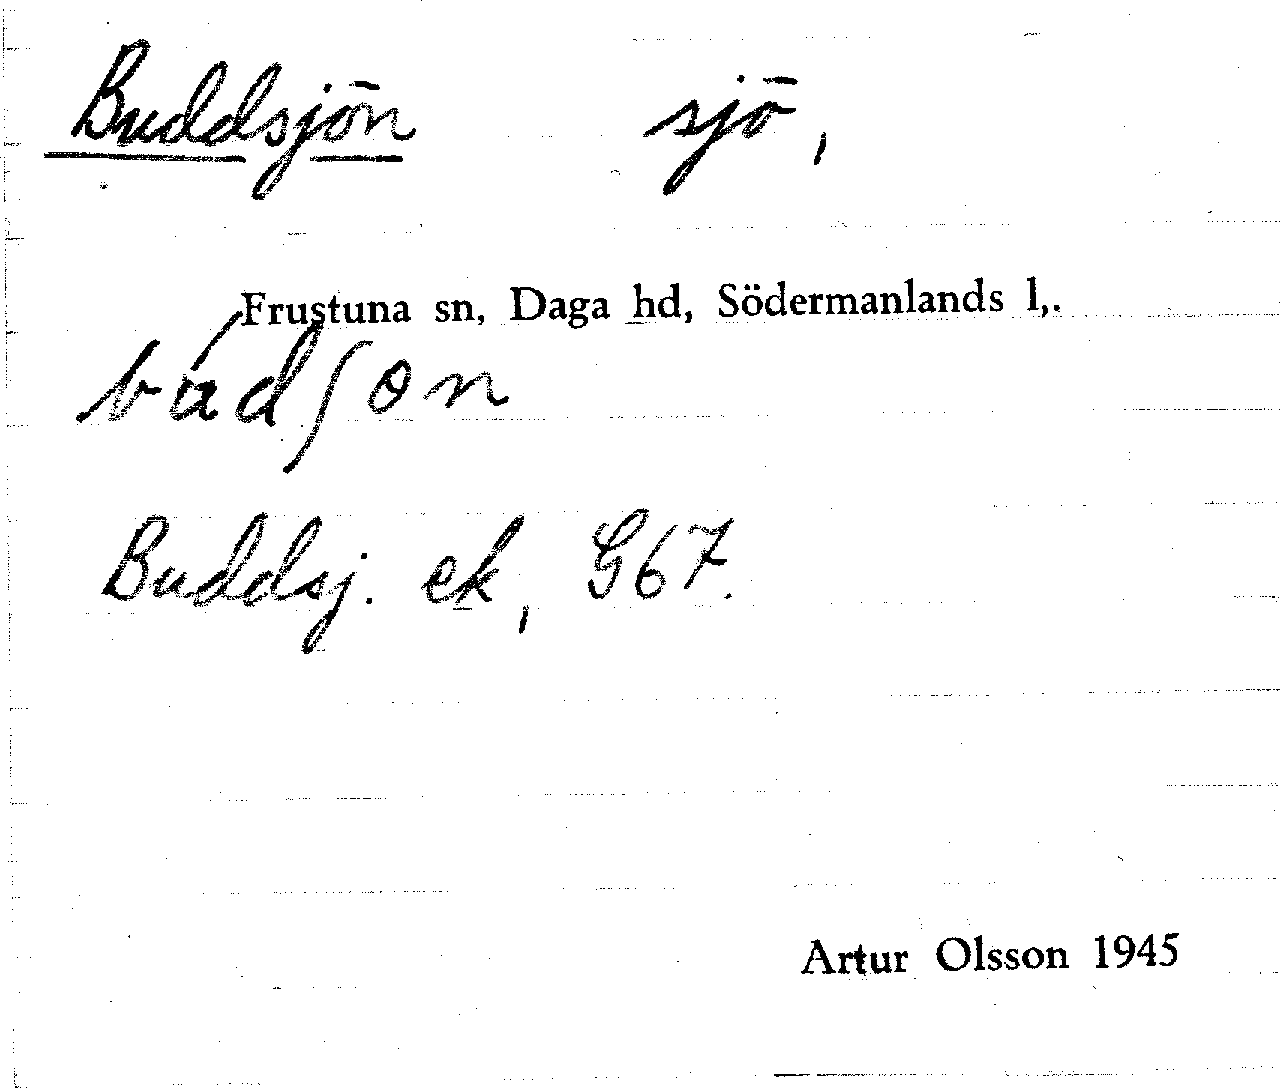 Buddsjön sjö,
Frustuna sn, Daga hd, Södermanlands l,.
búdʃɵn
Buddsj. ek, G67.
Artur Olsson 1945